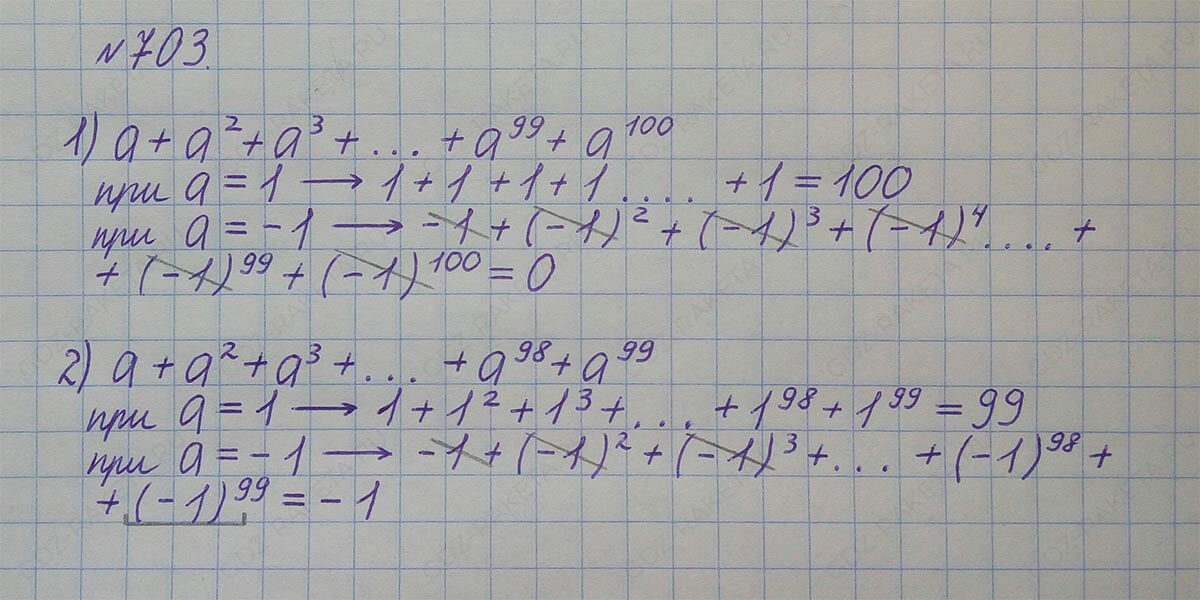 №703.
1) a + a² + a³ + .... + a⁹⁹ + a¹⁰⁰
при a = 1 ⟶ 1 + 1 + 1 + 1 ..... + 1 = 100
при a = -1 ⟶ -1 + (-1)² + (-1)³ + (-1)⁴ .... +
+ (-1)⁹⁹ + (-1)¹⁰⁰ = 0
2) a + a² + a³ + .... + a⁹⁸ + a⁹⁹
при a = 1 ⟶ 1 + 1² + 1³ + .... + 1⁹⁸ + 1⁹⁹ = 99
при a = -1 ⟶ -1 + (-1)² + (-1)³ + .... + (-1)⁹⁸ +
+ (-1)⁹⁹ = -1
GDZ-RAKETA.RU